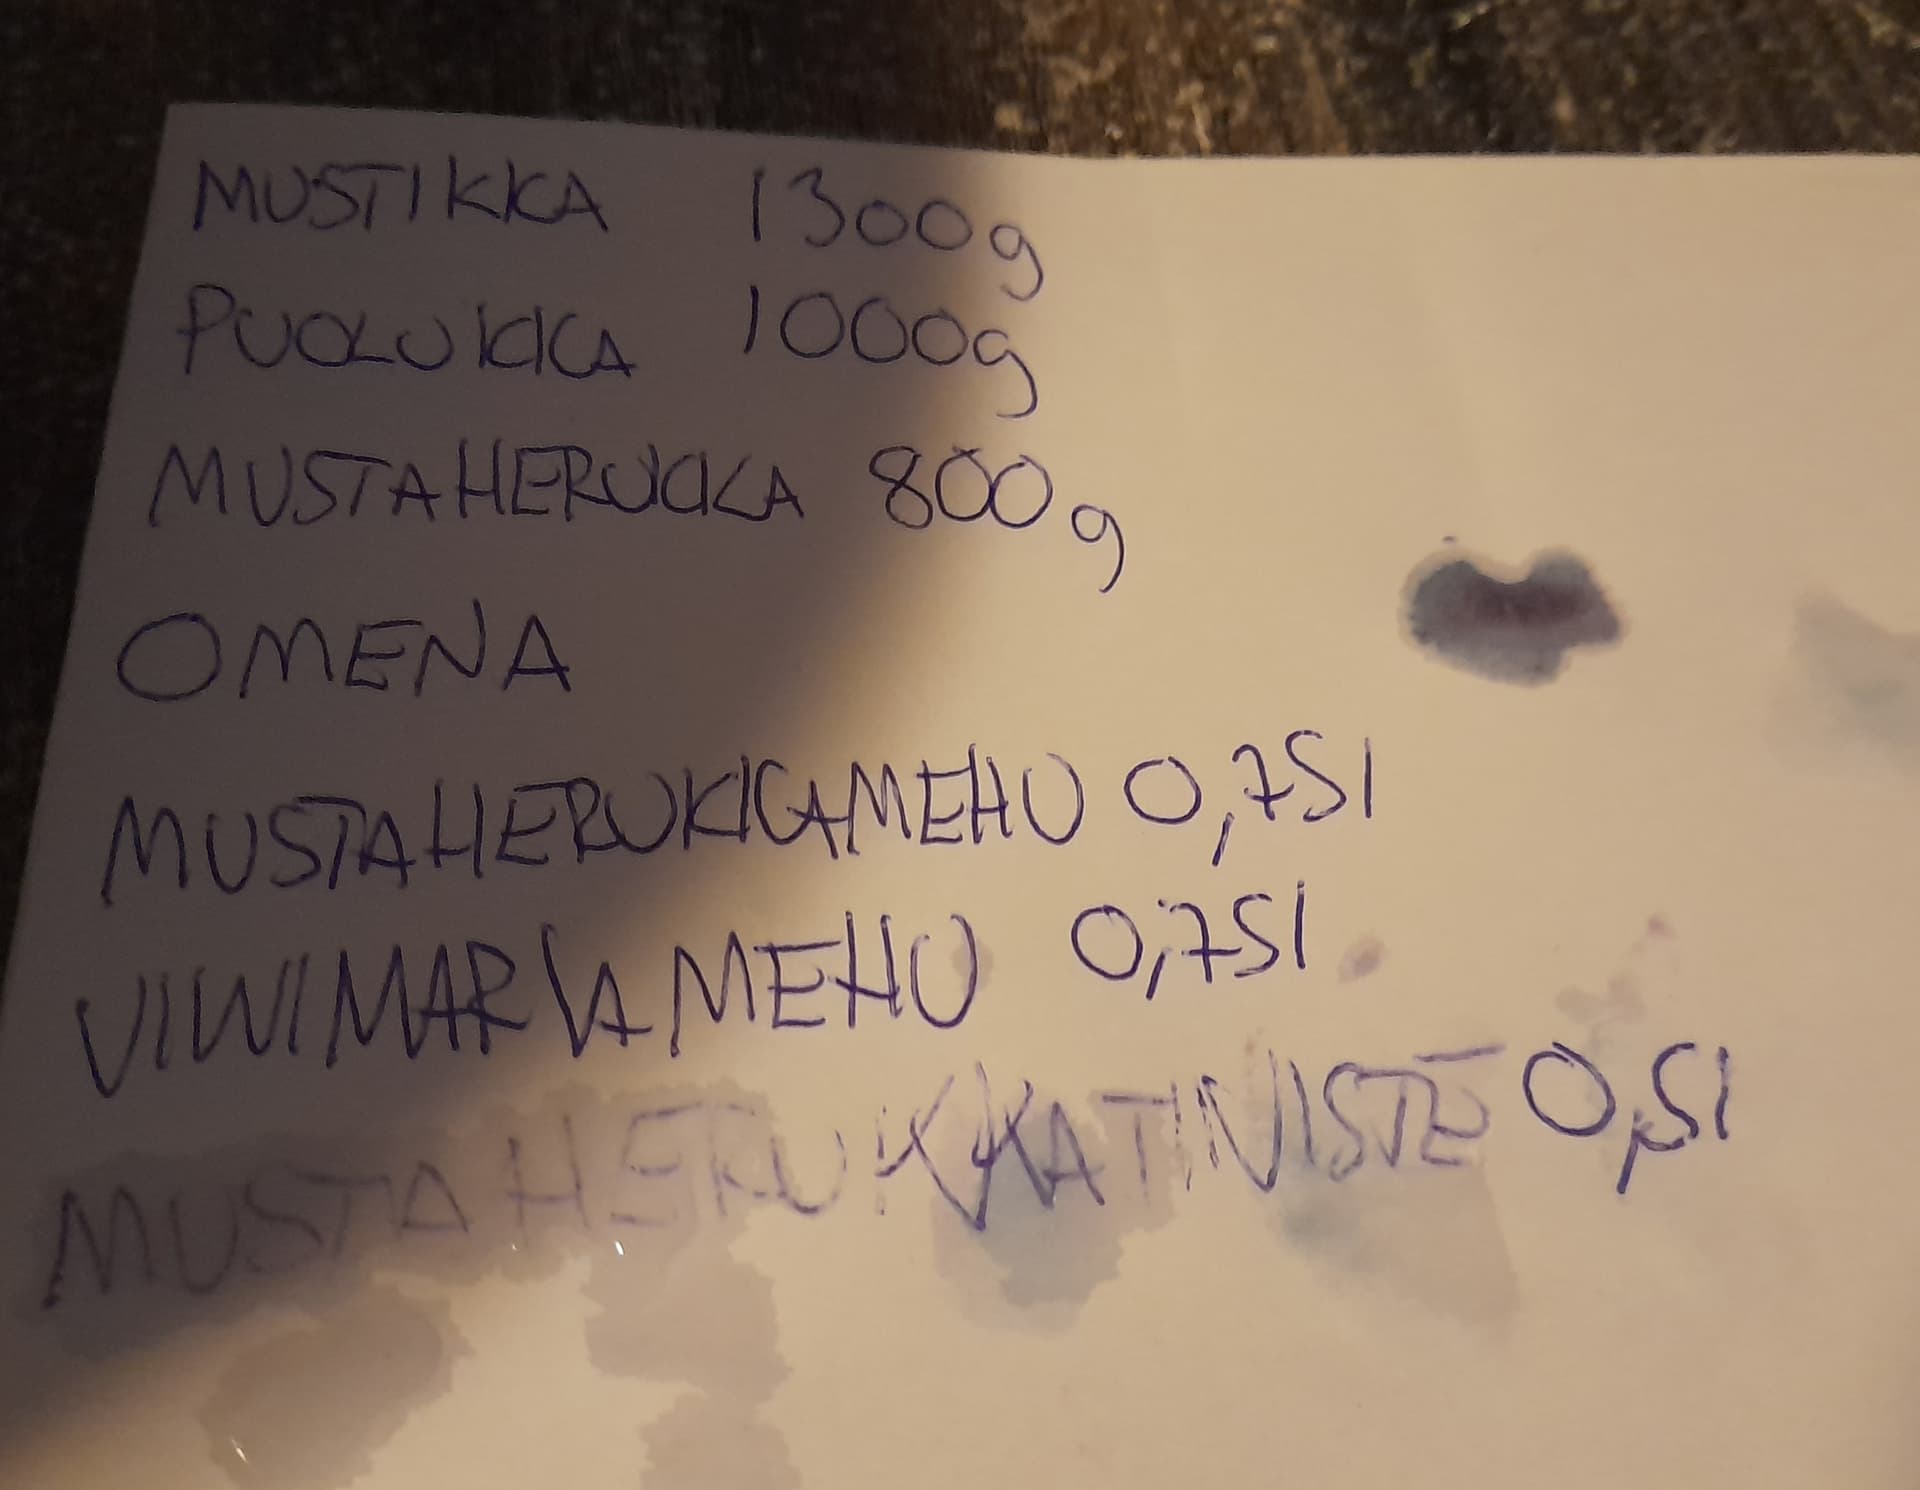 MUSTIKKA 1300g
PUOLUKKA 1000g
MUSTAHERUKKA 800g
OMENA
MUSTAHERUKKAMEHU 0,75l
VIINIMARJAMEHU 0,75l
MUSTAHERUKKATIIVISTE 0,5l